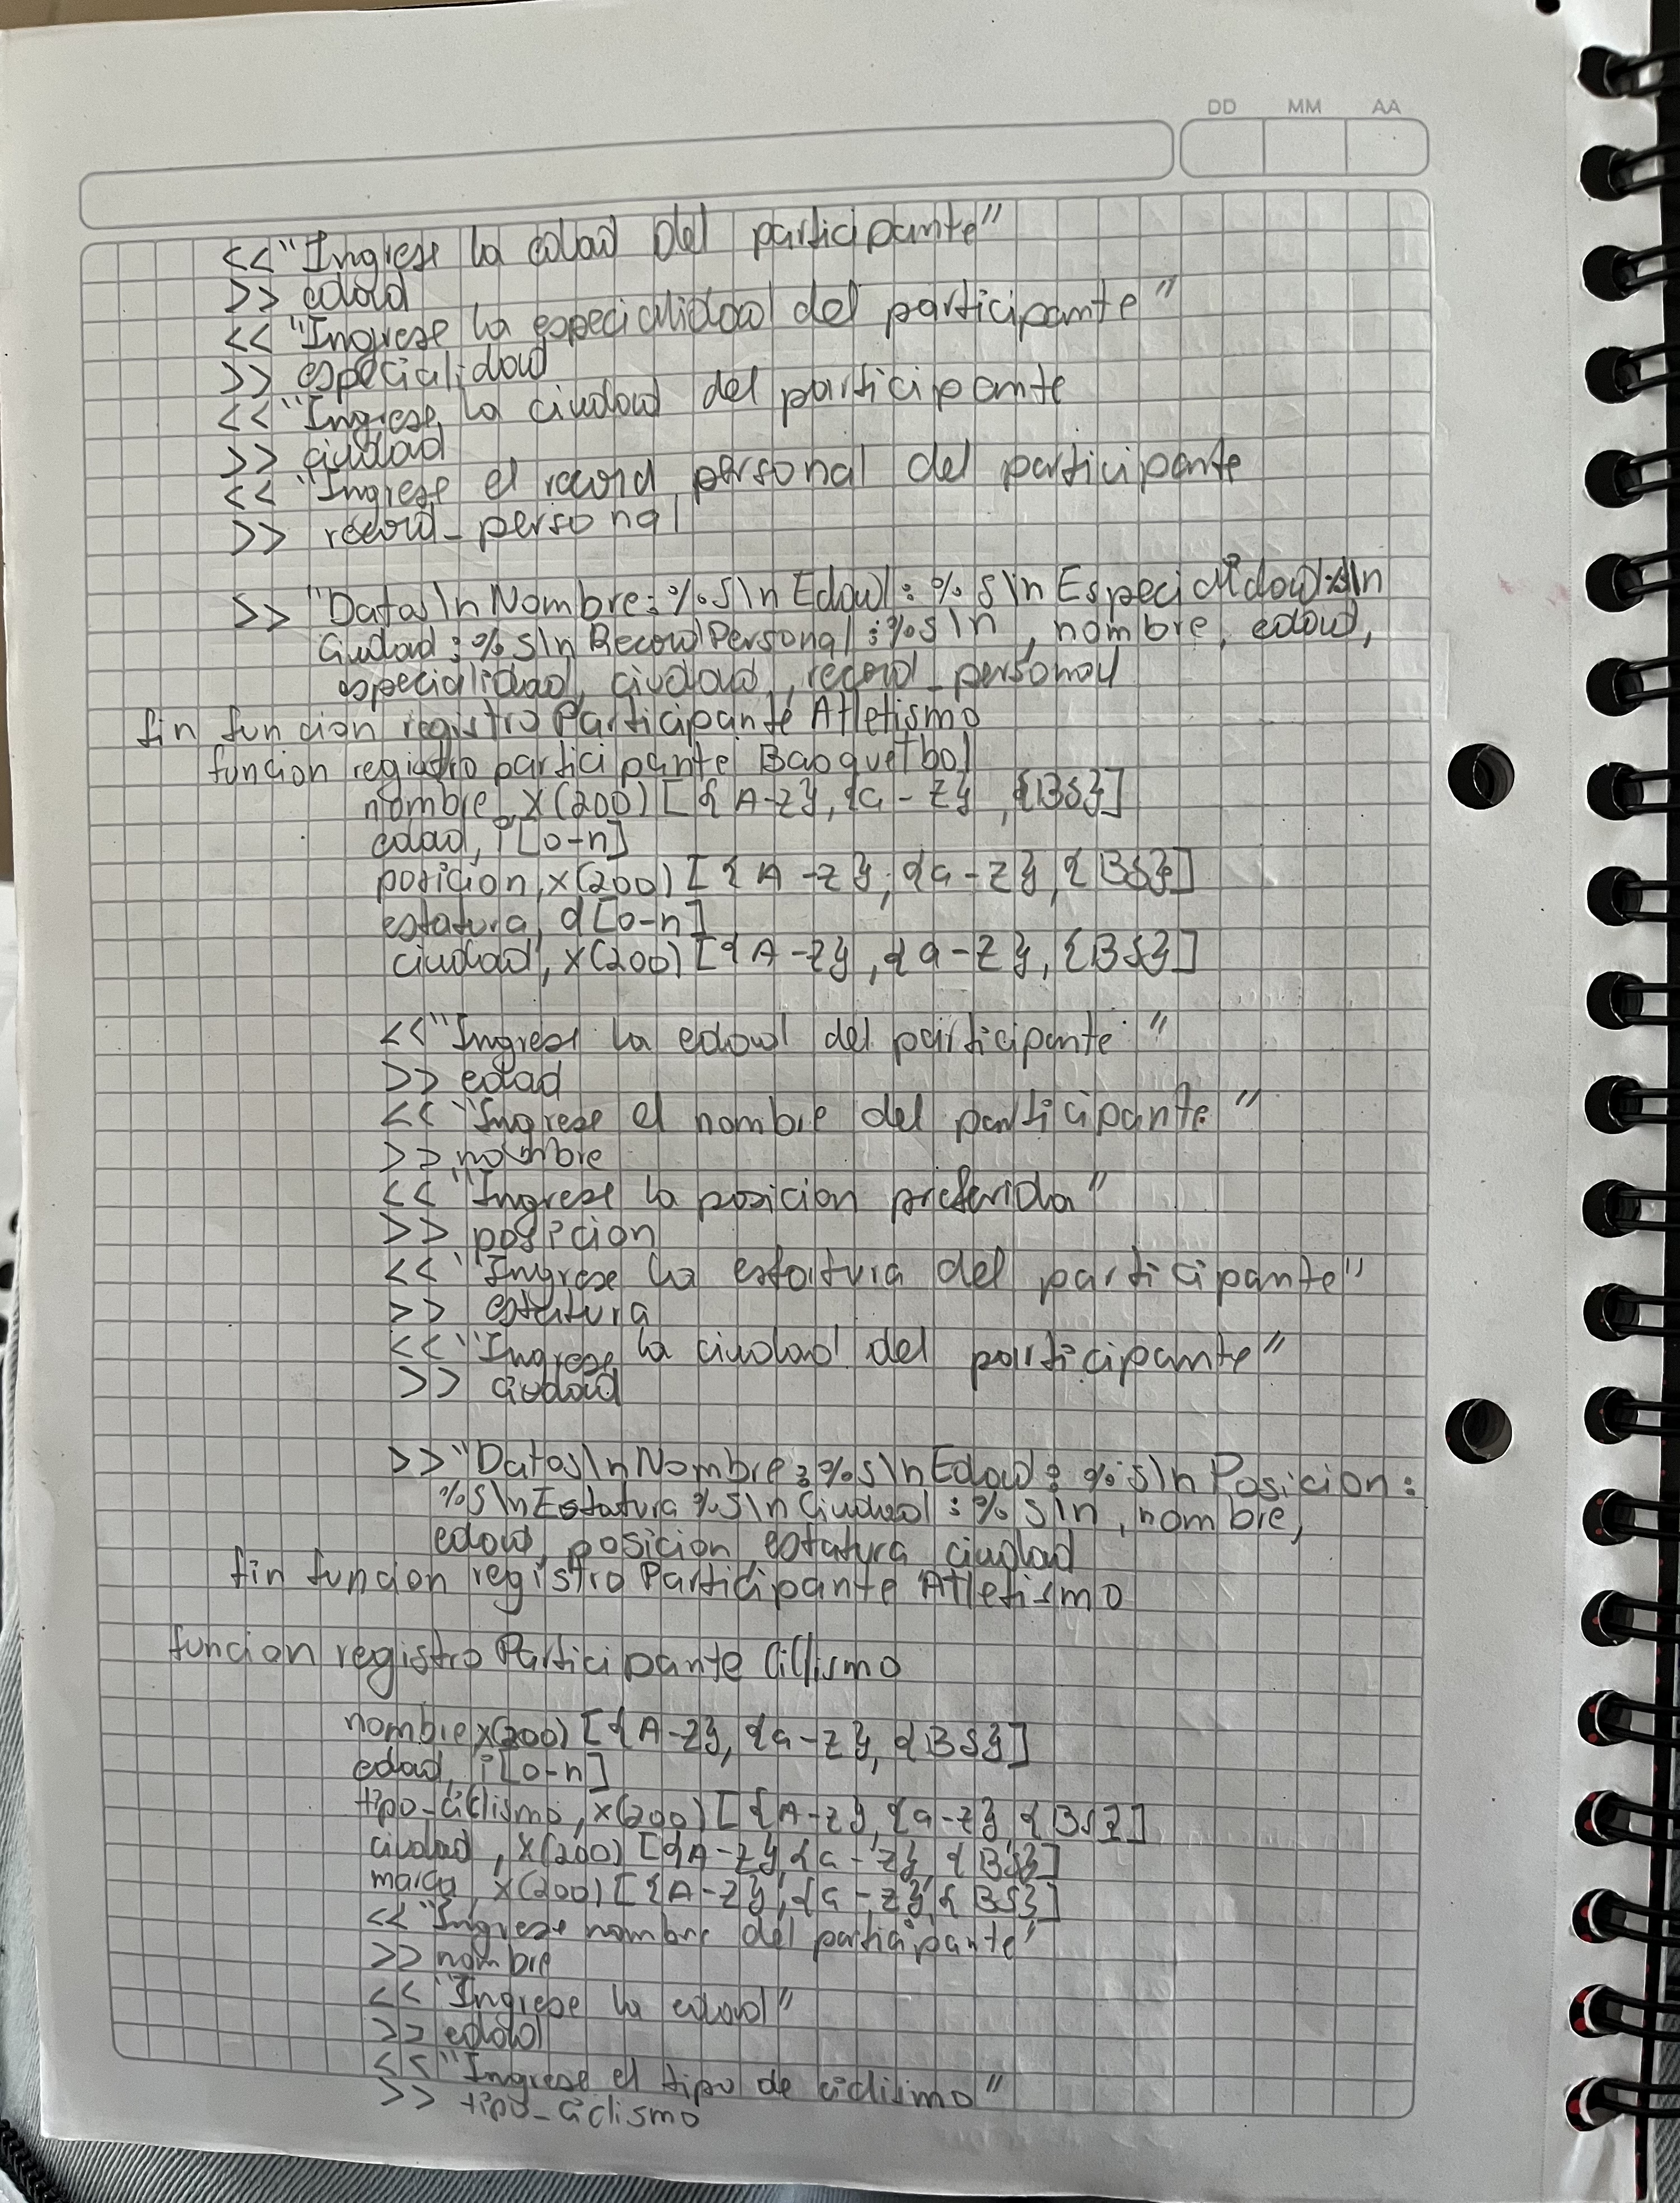 DD MM AA
<<"Ingrese la edad Del participante"
>> edad
<<"Ingrese la especialidad del participante"
>> especialidad
<<"Ingrese la ciudad del participante
>> ciudad
<<"Ingrese el record personal del participante
>> record_personal
>> "Datos\nNombre:%s\nEdad:%s\nEspecialidad:s\n
Ciudad:%s\nRecordPersonal:%s\n, nombre, edad,
especialidad, ciudad, record_personal
fin funcion registroParticipanteAtletismo
funcion registro participante Basquetbol
nombre, X(200)[{A-z},{a-z},{BS}]
edad, i[0-n]
posicion, x(200)[{A-z},{a-z},{BS}]
estatura, d[0-n]
ciudad, x(200)[{A-z},{a-z},{BS}]
<<"Ingrese la edad del participante"
>> edad
<<"Ingrese el nombre del participante"
>> nombre
<<"Ingrese la posicion preferida"
>> posicion
<<"Ingrese la estatura del participante"
>> estatura
<<"Ingrese la ciudad del participante"
>> ciudad
>>"Datos\nNombre:%s\nEdad:%s\nPosicion:
%s\nEstatura%s\nCiudad:%s\n, nombre,
edad, posicion, estatura, ciudad
fin funcion registroParticipanteAtletismo
funcion registroParticipante Ciclismo
nombre x(200)[{A-Z},{a-z},{BS}]
edad, i[0-n]
tipo-ciclismo, x(200)[{A-z},{a-z},{BS}]
ciudad, X(200)[{A-z},{a-z},{BS}]
marca, x(200)[{A-z},{a-z},{BS}]
<<"Ingrese nombre del participante"
>> nombre
<<"Ingrese la edad"
>> edad
<<"Ingrese el tipo de ciclismo"
>> tipo-ciclismo